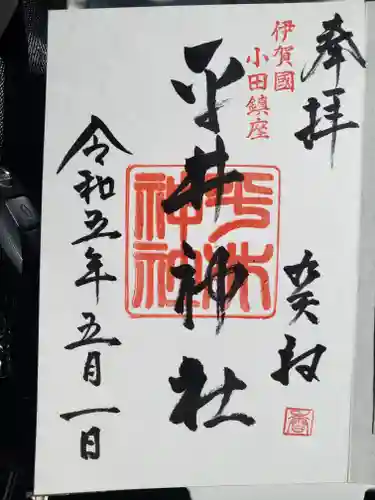 奉拝
伊賀國
小田鎮座
平井神社
平井
神社
令和五年五月一日